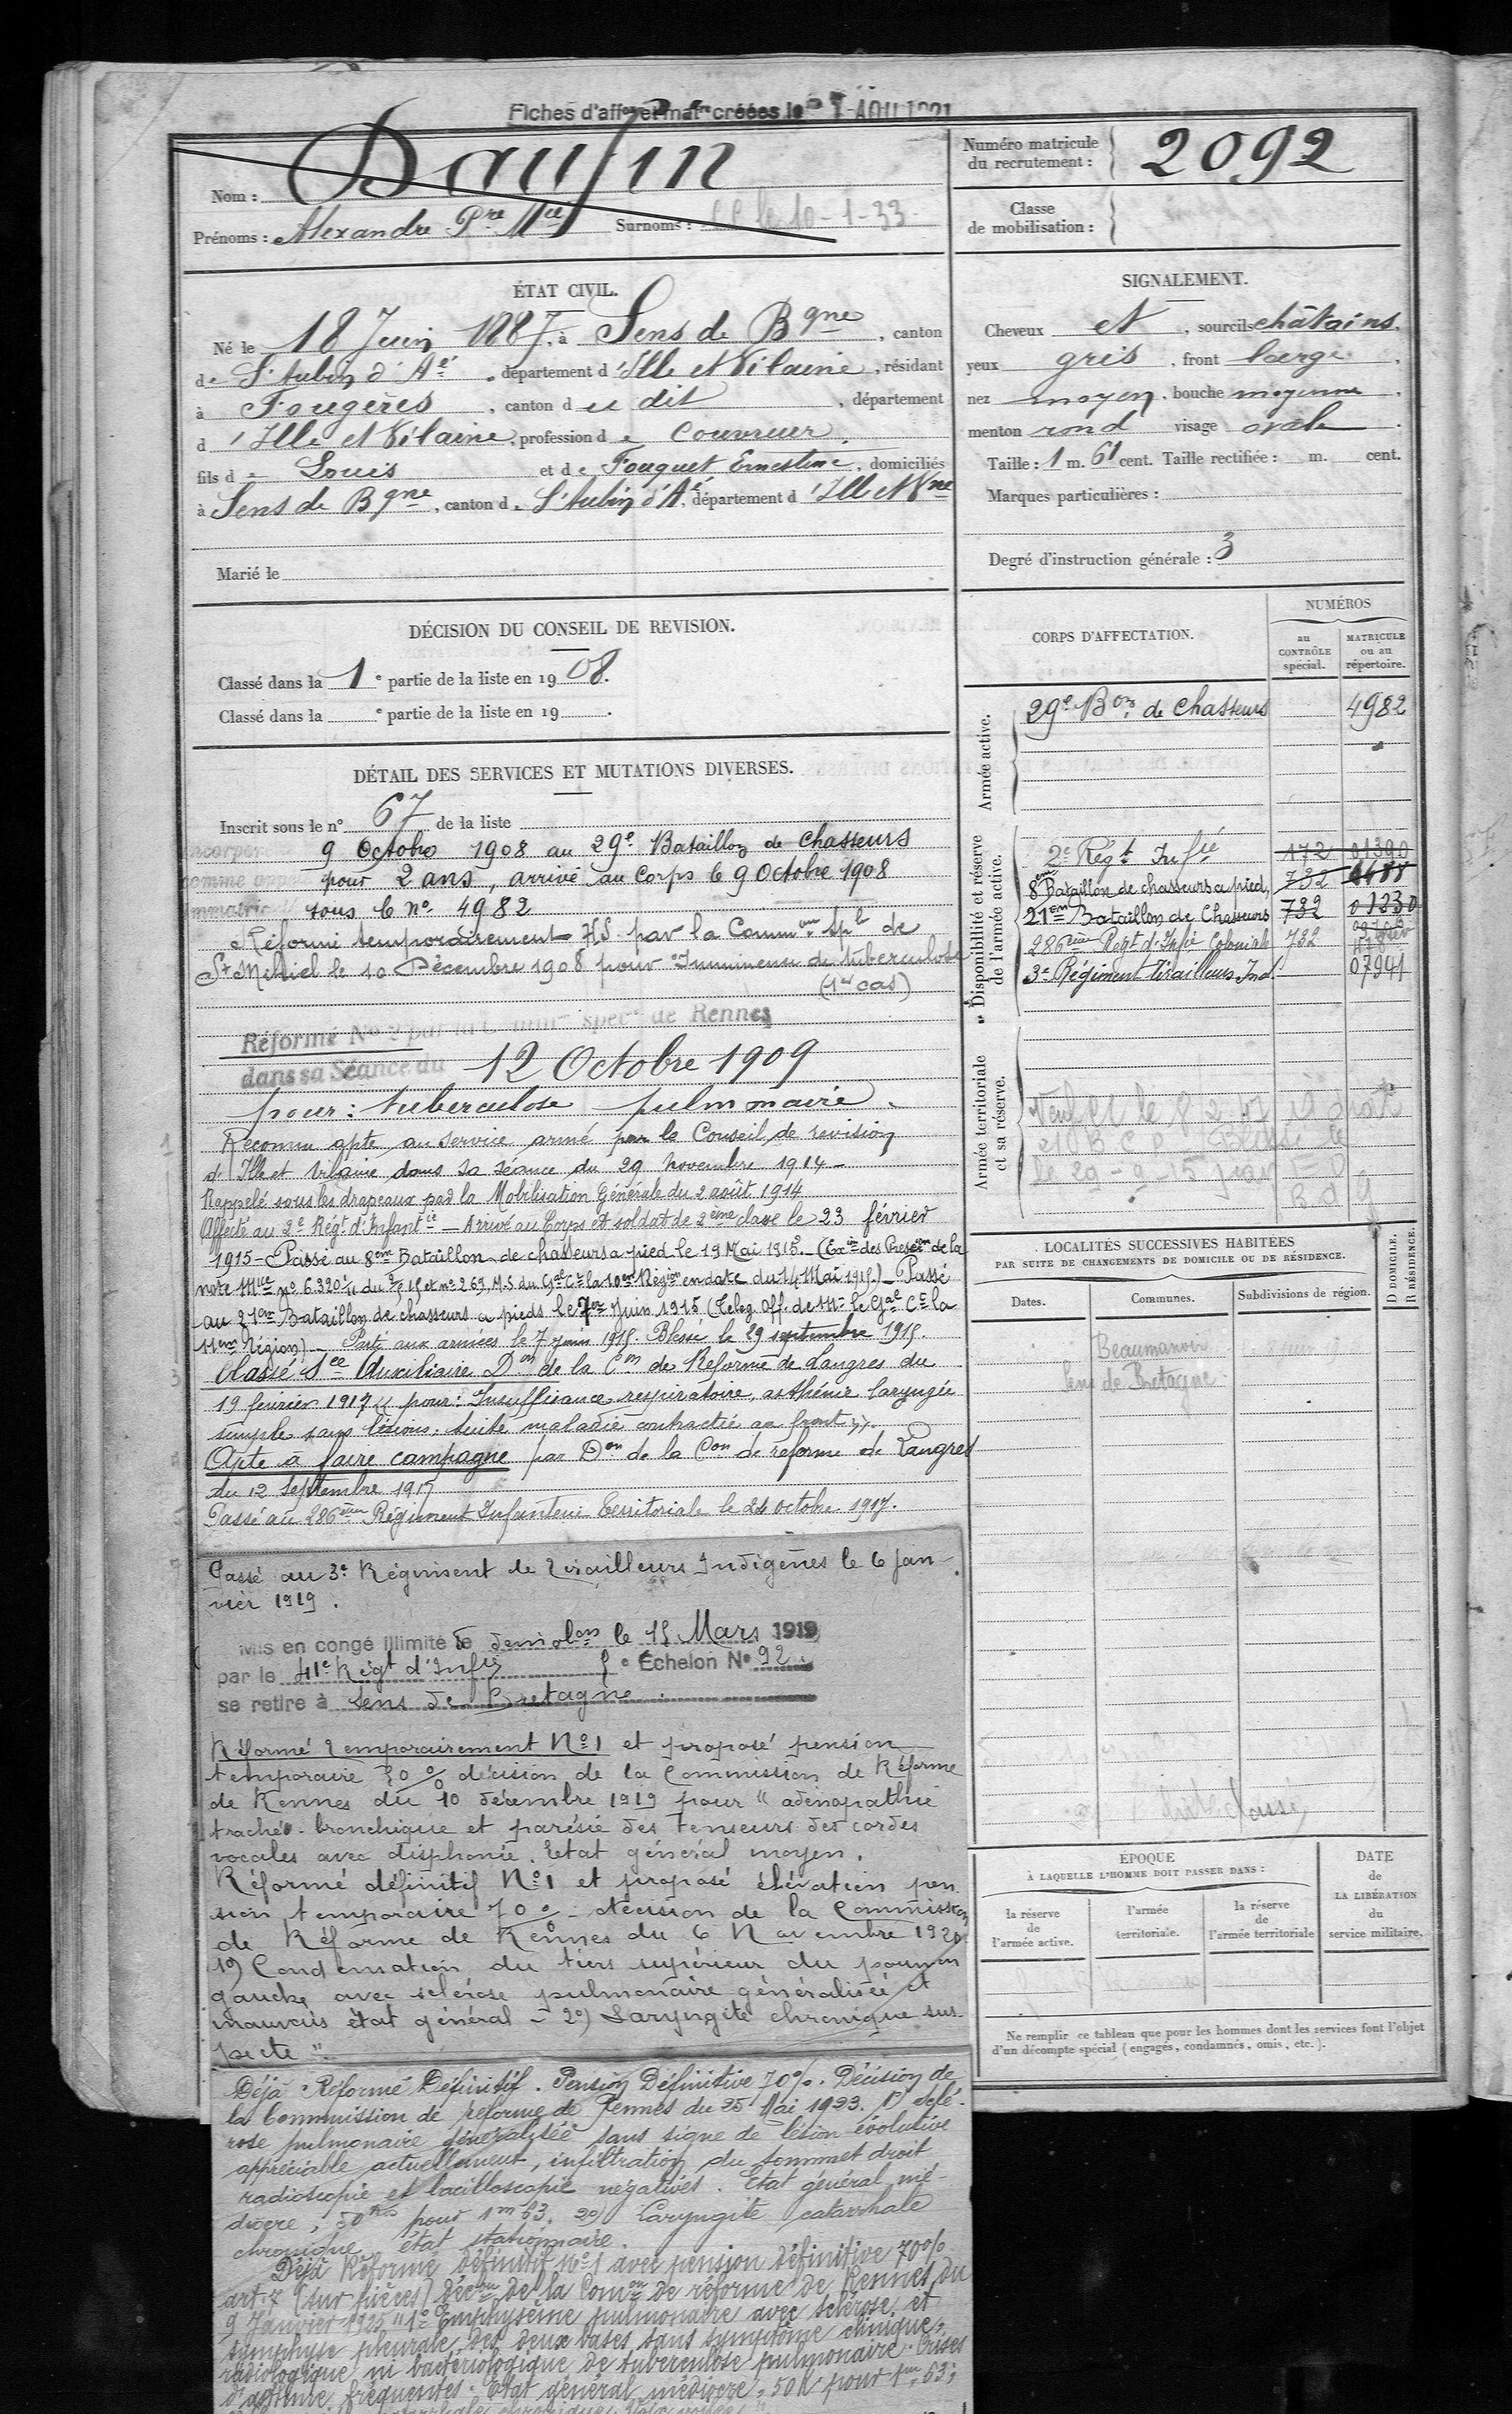 Fiches d'aff<sup>on</sup> et mat<sup>re</sup> créées le AOU 1921
Nom : Daufin
Prénoms : Alexandre P<sup>re</sup> M<sup>ce</sup> Surnoms : le 10-1-33
Numéro matricule du recrutement : 2092
Classe de mobilisation :
ÉTAT CIVIL.
Né le 18 Juin 1887, à Sens de B<sup>gne</sup>, canton
de S<sup>t</sup> Aubin d'A<sup>é</sup>, département d'Ille et Vilaine, résidant
à Fougères, canton du dit, département
d'Ille et Vilaine, profession de couvreur
fils de Louis et de Fouquet Ernestine, domiciliés
à Sens de B<sup>gne</sup>, canton de S<sup>t</sup> Aubin d'A<sup>é</sup>, département d'Ille et V<sup>ne</sup>
Marié le
SIGNALEMENT.
Cheveux et, sourcils châtains,
yeux gris, front large,
nez moyen, bouche moyenne,
menton rond visage ovale.
Taille : 1 m. 61 cent. Taille rectifiée : m. cent.
Marques particulières :
Degré d'instruction générale : 3
DÉCISION DU CONSEIL DE REVISION.
Classé dans la 1<sup>e</sup> partie de la liste en 1908.
Classé dans la <sup>e</sup> partie de la liste en 19 .
DÉTAIL DES SERVICES ET MUTATIONS DIVERSES.
Inscrit sous le n° 67 de la liste
9 Octobre 1908 au 29<sup>e</sup> Bataillon de Chasseurs
pour 2 ans, arrivé au corps le 9 Octobre 1908
sous le N° 4982
Réformé temporairement H.S. par la Comm<sup>on</sup> Sp<sup>le</sup> de
S<sup>t</sup> Mihiel le 10 Décembre 1908 pour Imminence de tuberculose
(1<sup>er</sup> cas)
Réformé N° 2 par la Comm<sup>on</sup> spéc<sup>le</sup> de Rennes
dans sa Séance du 12 Octobre 1909
pour : tuberculose pulmonaire.
Reconnu apte au service armé par le Conseil de revision
d'Ille et Vilaine dans sa séance du 29 Novembre 1914 -
Rappelé sous les drapeaux par la Mobilisation Générale du 2 août 1914
Affecté au 2<sup>e</sup> Rég<sup>t</sup> d'Infant<sup>ie</sup> - Arrivé au Corps et soldat de 2<sup>ème</sup> classe le 23 février
1915 - Passé au 8<sup>em</sup> Bataillon de chasseurs a pied le 19 Mai 1915. - (Ex<sup>on</sup> des Prescri<sup>on</sup> de la
note M<sup>lle</sup> n° 6.320 1/11 du et n° 269 M.S. du G<sup>al</sup> C<sup>t</sup> la 10<sup>em</sup> Région en date du 14 Mai 1915) - Passé
au 21<sup>em</sup> Bataillon de chasseurs a pieds le 7 Juin 1915 (Teleg. Off. de M<sup>r</sup> le G<sup>al</sup> C<sup>t</sup> la
Région) - Parti aux armées le 7 juin 1915. Blessé le 29 septembre 1915.
Classé S<sup>ce</sup> Auxiliaire D<sup>on</sup> de la C<sup>on</sup> de Réforme de Langres du
19 février 1917 « pour : Insuffisance respiratoire, asthénie laryngée
simple sans lésions. suite maladie contractée au front ».
Apte à faire campagne par D<sup>on</sup> de la C<sup>on</sup> de reforme de Langres
du 12 Septembre 1917
Passé au 286<sup>ème</sup> Régiment Infanterie Territoriale le 24 octobre 1917.
Passé au 3<sup>e</sup> Régiment de Tirailleurs Indigènes le 6 Jan-
vier 1919.
Mis en congé illimité de démob<sup>on</sup> le 15 Mars 1919
par le 41<sup>e</sup> Rég<sup>t</sup> d'Inf<sup>ie</sup> <sup>e</sup> Échelon N° 92.
se retire à Sens de Bretagne.
Réformé Temporairement N° 1 et proposé pension
temporaire 30 % décision de la Commission de Réforme
de Rennes du 10 décembre 1919 pour " adénopathie
trachéo-bronchique et parésie des tenseurs des cordes
vocales avec disphonie. Etat général moyen.
Réformé définitif N° 1 et proposé élévation pen
sion temporaire 70 % - décision de la Commission
de Réforme de Rennes du 6 Novembre 1920
1°) Condensation du tiers supérieur du poumon
gauche avec sclérose pulmonaire généralisée et
mauvais état général - 2°) Laryngite chronique sus-
pecte ".
Déjà Réformé Définitif. Pension Définitive 70%. Décision de
la Commission de réforme de Rennes du 25 Mai 1923. 1°) sclé-
rose pulmonaire généralisée sans signe de lésion évolutive
appréciable actuellement, infiltration du sommet droit
radioscopie et bacilloscopie négatives. Etat général mé-
diocre, 50 K<sup>os</sup> pour 1<sup>m</sup>63. 2°) Laryngite catarrhale
chronique état stationnaire.
Déjà Réformé définitif N° 1 avec pension définitive 70%
art. 7 (sur pièces) déc<sup>on</sup> de la Com<sup>on</sup> de réforme de Rennes du
9 Janvier 1925 " 1° Emphysème pulmonaire avec sclérose et
symphyse pleurale des deux bases sans symptôme clinique,
radiologique ni bactériologique de tuberculose pulmonaire. Crises
d'asthme fréquentes. Etat général médiocre, 50 K pour 1<sup>m</sup>.63;
catarrhale chronique. Voix voilée "
CORPS D'AFFECTATION.
NUMÉROS
au CONTRÔLE spécial.
MATRICULE ou au répertoire.
Armée active.
29<sup>e</sup> B<sup>on</sup> de Chasseurs 4982
Disponibilité et réserve de l'armée active.
2<sup>e</sup> Rég<sup>t</sup> Inf<sup>ie</sup> 172 01390
8<sup>em</sup> Bataillon de chasseurs a pied, 732
21<sup>em</sup> Bataillon de Chasseurs 732 01230
286<sup>ème</sup> Rég<sup>t</sup> d'Infie Coloniale 732
3<sup>e</sup> Régiment Tirailleurs Ind. 07941
Armée territoriale et sa réserve.
LOCALITÉS SUCCESSIVES HABITÉES
PAR SUITE DE CHANGEMENTS DE DOMICILE OU DE RÉSIDENCE.
Dates. Communes. Subdivisions de région. D DOMICILE. R RÉSIDENCE.
Beaumanoir
Sens de Bretagne
ÉPOQUE
À LAQUELLE L'HOMME DOIT PASSER DANS :
la réserve de l'armée active.
l'armée territoriale.
la réserve de l'armée territoriale
DATE de LA LIBÉRATION du service militaire.
Ne remplir ce tableau que pour les hommes dont les services font l'objet
d'un décompte spécial (engagés, condamnés, omis, etc.).